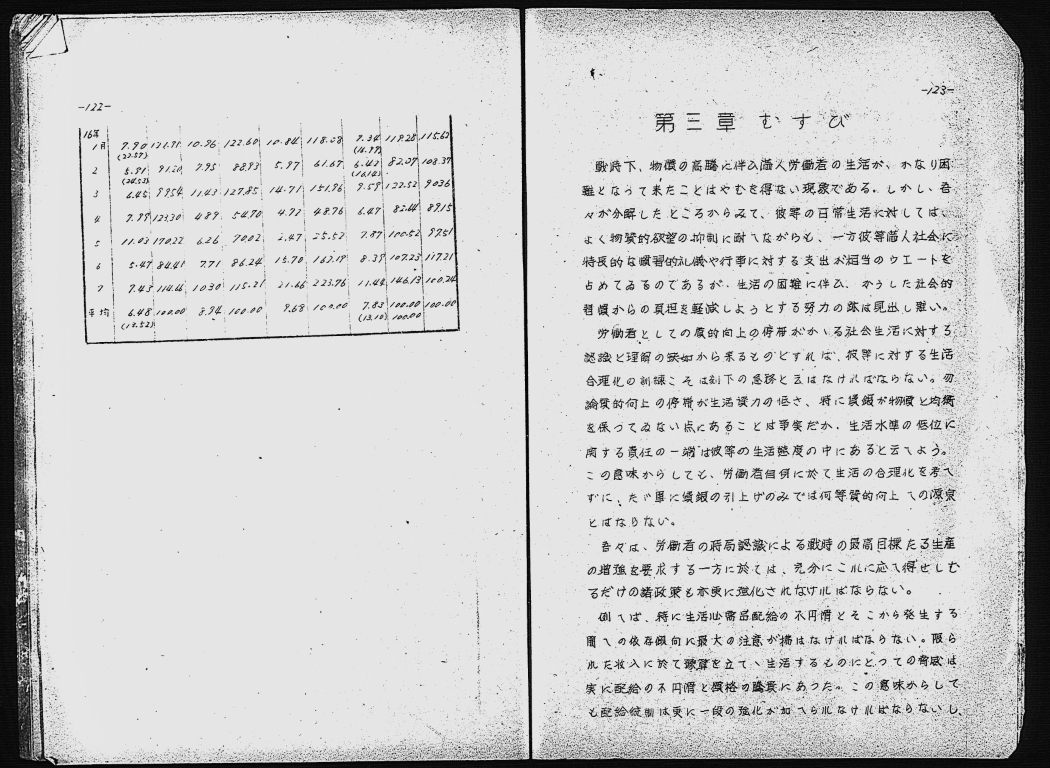 -122-
16年
1月 7.90 121.91 10.96 122.60 10.84 118.08 9.34 119.28 115.62
(22.57) (14.99)
2 5.91 91.20 7.95 88.93 5.97 61.67 6.43 82.07 108.37
(24.52) (16.12)
3 6.45 99.54 11.43 127.85 14.71 151.96 9.59 122.52 90.36
4 7.99 123.30 4.89 54.70 4.72 48.76 6.47 82.64 89.15
5 11.03 170.22 6.26 70.02 2.47 25.52 7.87 100.52 97.51
6 5.47 84.41 7.71 86.24 15.70 162.19 8.39 107.23 117.21
7 7.43 114.66 10.30 115.21 21.66 223.76 11.44 146.13 100.24
平均 6.48 100.00 8.94 100.00 9.68 100.00 7.83 100.00 100.00
(19.52) (13.10) 100.00
-123-
第三章 むすび
戦時下、物價の高騰に伴ひ満人労働者の生活が、かなり困
難となって来たことはやむを得ない現象である。しかし、吾
々が分解したところからみて、彼等の日常生活に対しては、
よく物質的欲望の抑制に耐へながらも、一方彼等満人社会に
特長的な慣習的礼儀や行事に対する支出が相当のウエートを
占めてゐるのであるが、生活の困難に伴ひ、かうした社会的
習慣からの負担を軽減しようとする努力の跡は見出し難い。
労働者としての質的向上の停帯がかゝる社会生活に対する
認識と理解の欠如から来るものとすれば、彼等に対する生活
合理化の訓練こそは刻下の急務と云はなければならない。勿
論質的向上の停帯が生活資力の低さ、特に賃銀が物價と均衡
を保ってゐない点にあることは事実だが、生活水準の低位に
関する責任の一端は彼等の生活態度の中にあると云へよう。
この意味からしても、労働者自体に於て生活の合理化を考へ
ずに、たゞ単に賃銀の引上げのみでは何等質的向上への源泉
とはならない。
吾々は、労働者の時局認識による戦時の最高目標たる生産
の増強を要求する一方に於ては、充分にこれに応へ得せしむ
るだけの諸政策も亦更に強化されなければならない。
例へば、特に生活必需品配給の不円滑とそこから発生する
闇への依存傾向に最大の注意が拂はなければならない。限ら
れた收入に於て豫算を立てゝ生活するものにとっての脅威は
実に配給の不円滑と價格の騰貴にあった。この意味からして
も配給統制は更に一段の強化が加へられなければならないし、